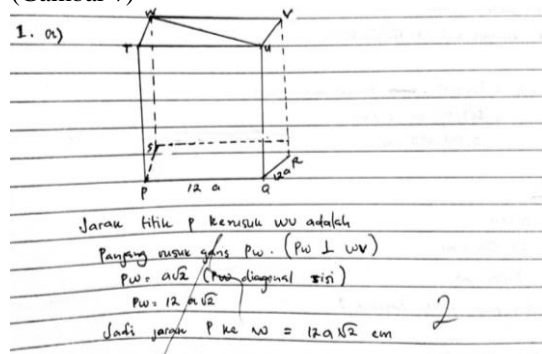 W V
1. a)
T U
S R
12 a
P 12 a Q
Jarak titik P kerusuk WV adalah
Panjang rusuk garis PW. (PW ⊥ WV)
PW = a√2 (PW diagonal sisi)
PW = 12 a√2
Jadi jarak P ke W = 12a√2 cm
2